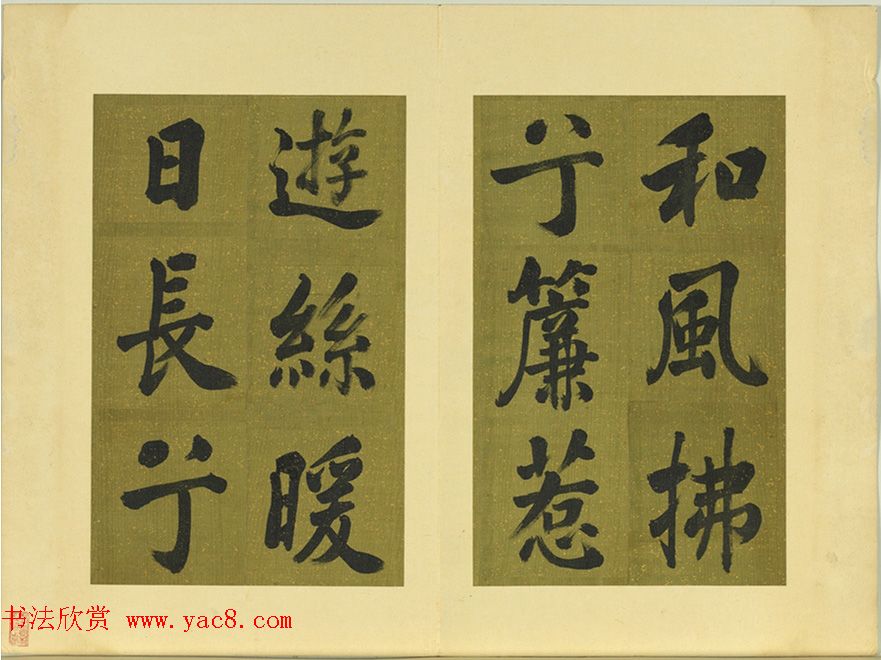 和風拂
兮簾惹
遊絲暖
日長兮
书法欣赏 www.yac8.com